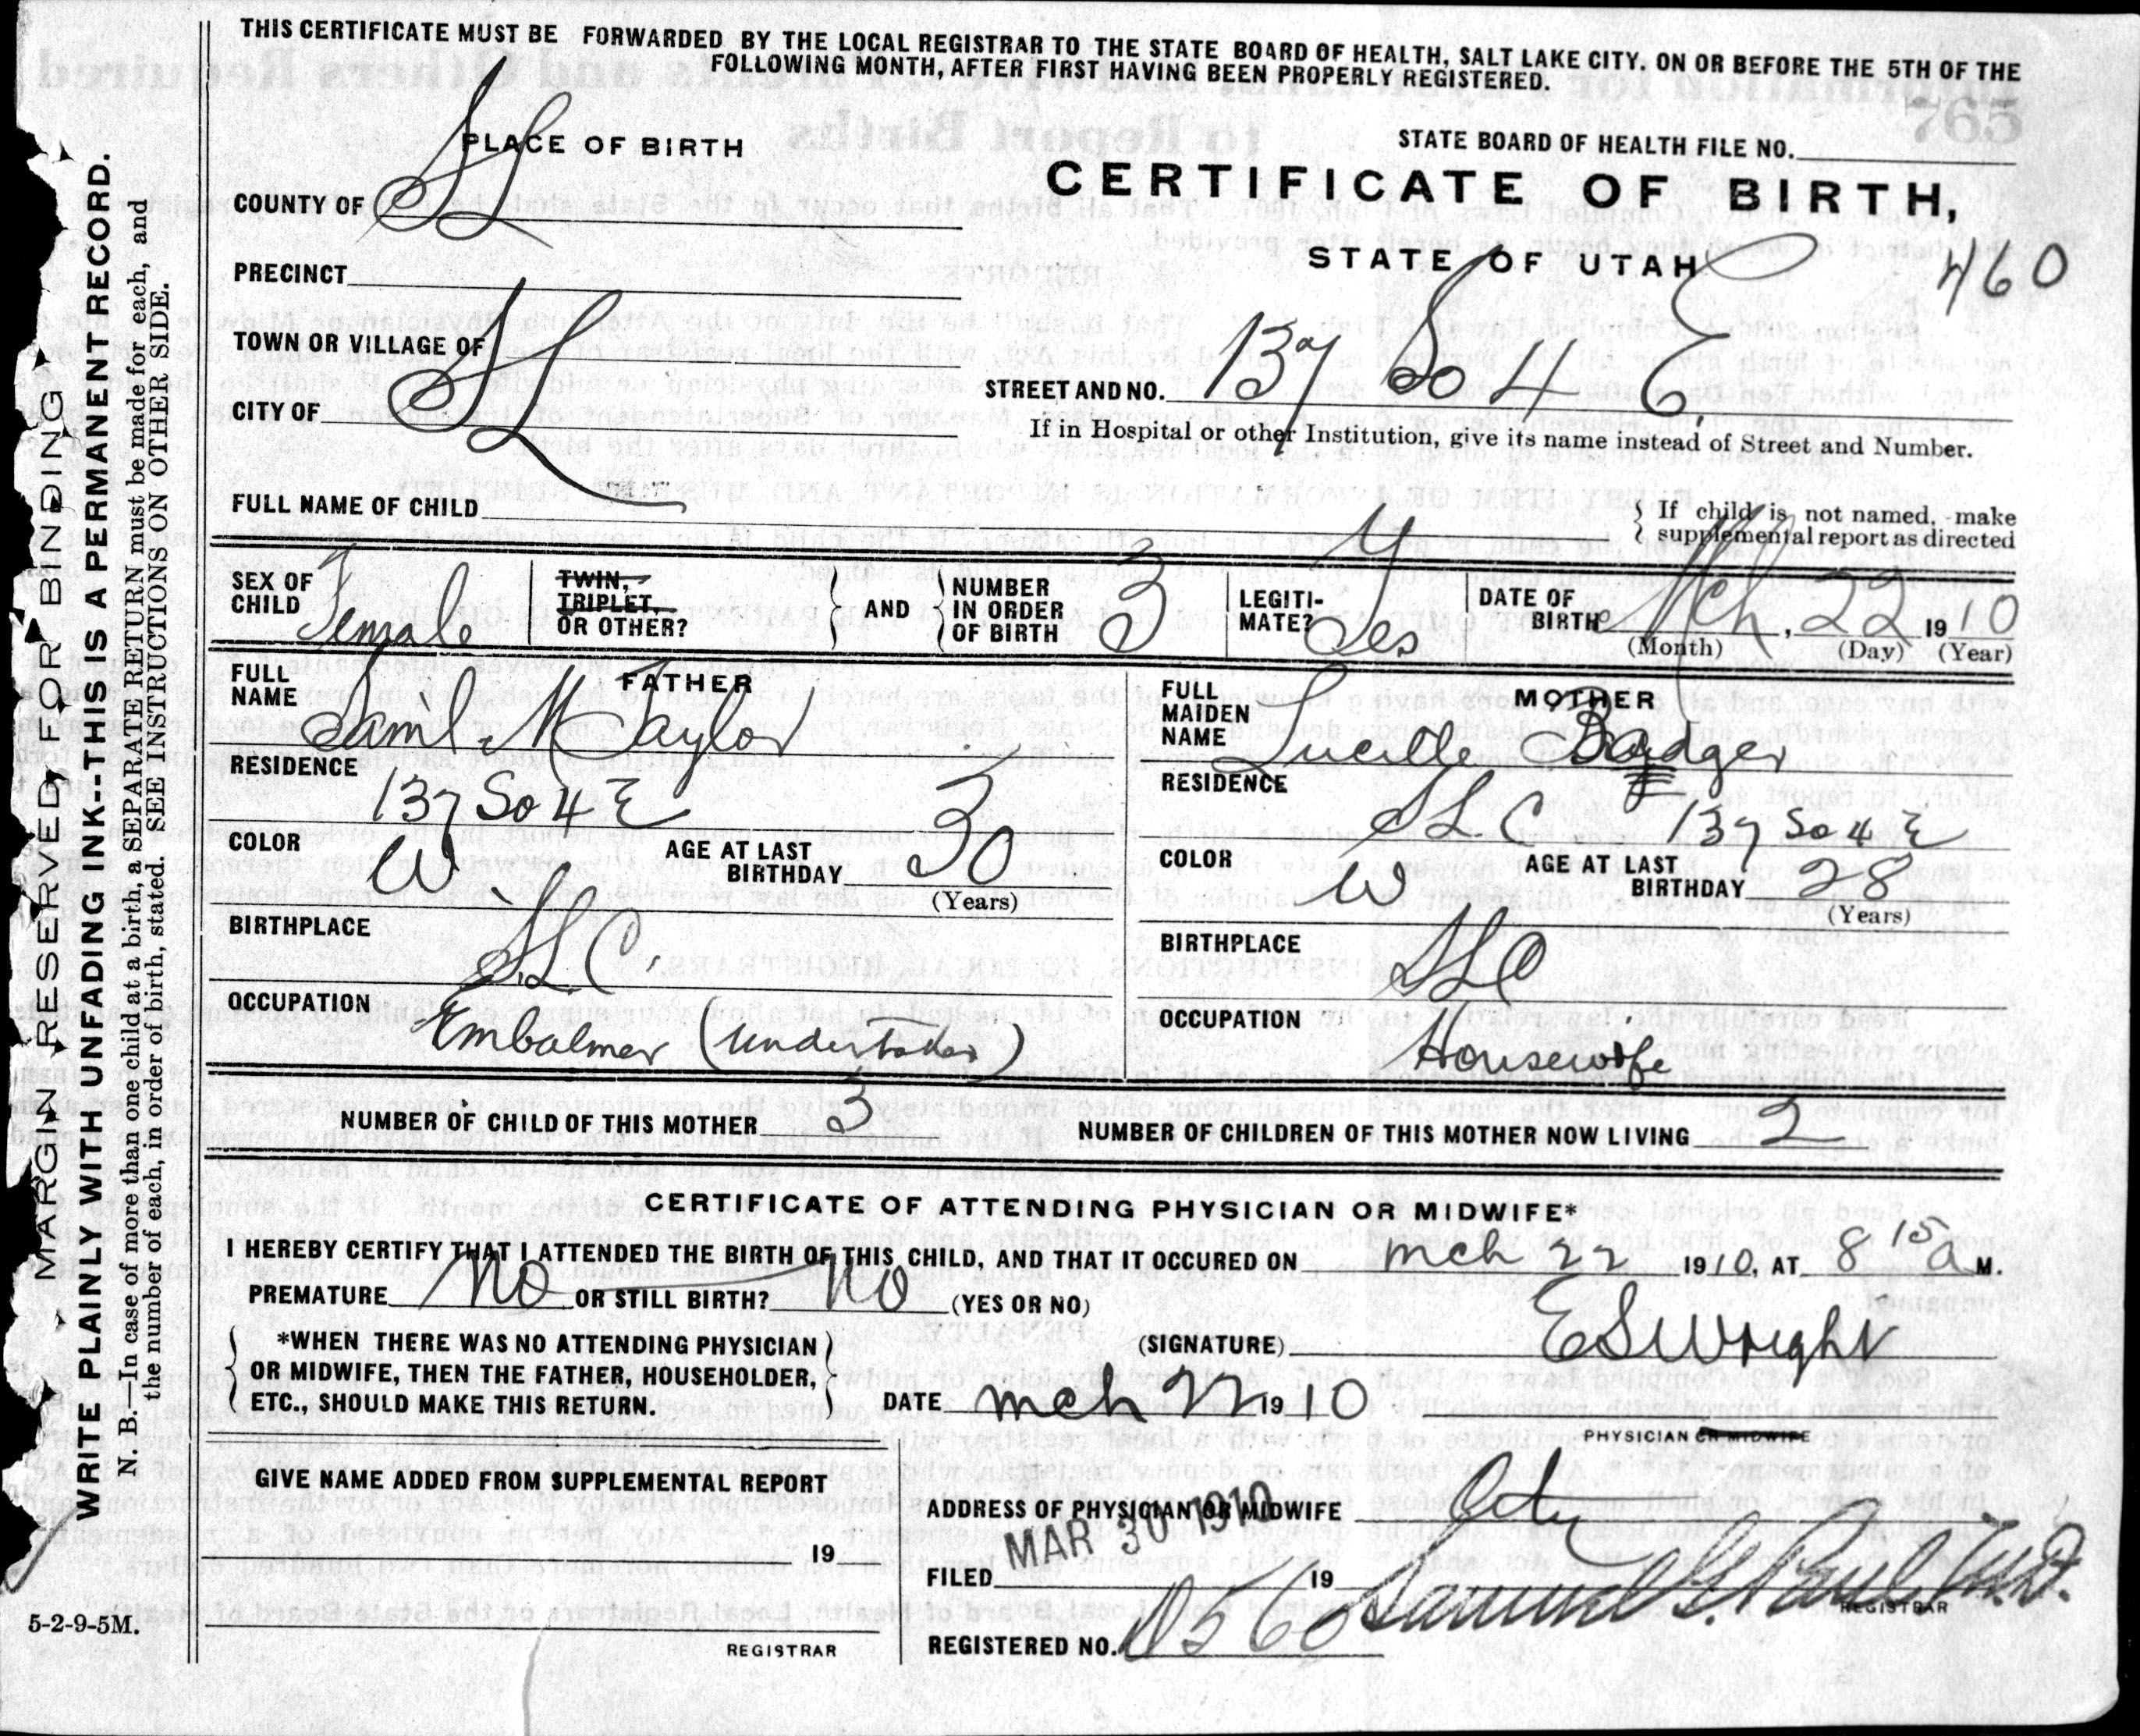 THIS CERTIFICATE MUST BE FORWARDED BY THE LOCAL REGISTRAR TO THE STATE BOARD OF HEALTH, SALT LAKE CITY. ON OR BEFORE THE 5TH OF THE
FOLLOWING MONTH, AFTER FIRST HAVING BEEN PROPERLY REGISTERED.
765
PLACE OF BIRTH
STATE BOARD OF HEALTH FILE NO.
CERTIFICATE OF BIRTH,
COUNTY OF SL
STATE OF UTAH
460
PRECINCT
TOWN OR VILLAGE OF
STREET AND NO. 137 So 4 E.
CITY OF SL
If in Hospital or other Institution, give its name instead of Street and Number.
FULL NAME OF CHILD
If child is not named, make
supplemental report as directed
SEX OF CHILD Female
TWIN, TRIPLET, OR OTHER?
AND
NUMBER IN ORDER OF BIRTH 3
LEGITI-MATE? Yes
DATE OF BIRTH Mch, 22 1910
(Month) (Day) (Year)
FATHER
FULL NAME Saml M Taylor
RESIDENCE
137 So 4 E
COLOR W
AGE AT LAST BIRTHDAY 30
(Years)
BIRTHPLACE
S.L.C.
OCCUPATION
Embalmer (Undertaker)
MOTHER
FULL MAIDEN NAME Lucille Badger
RESIDENCE
SLC 137 So 4 E
COLOR W
AGE AT LAST BIRTHDAY 28
(Years)
BIRTHPLACE
SLC
OCCUPATION
Housewife
NUMBER OF CHILD OF THIS MOTHER 3
NUMBER OF CHILDREN OF THIS MOTHER NOW LIVING 2
CERTIFICATE OF ATTENDING PHYSICIAN OR MIDWIFE*
I HEREBY CERTIFY THAT I ATTENDED THE BIRTH OF THIS CHILD, AND THAT IT OCCURED ON mch 22 1910, AT 8 15 a M.
PREMATURE No OR STILL BIRTH? No (YES OR NO)
*WHEN THERE WAS NO ATTENDING PHYSICIAN
OR MIDWIFE, THEN THE FATHER, HOUSEHOLDER,
ETC., SHOULD MAKE THIS RETURN.
(SIGNATURE) ESWright
DATE mch 22 1910
PHYSICIAN OR MIDWIFE
GIVE NAME ADDED FROM SUPPLEMENTAL REPORT
19
REGISTRAR
ADDRESS OF PHYSICIAN OR MIDWIFE City
MAR 30 1910
FILED 19 Samuel G. Paul M.D.
REGISTRAR
REGISTERED NO. N560
5-2-9-5M.
MARGIN RESERVED FOR BINDING
WRITE PLAINLY WITH UNFADING INK--THIS IS A PERMANENT RECORD.
N. B.—In case of more than one child at a birth, a SEPARATE RETURN must be made for each, and
the number of each, in order of birth, stated. SEE INSTRUCTIONS ON OTHER SIDE.